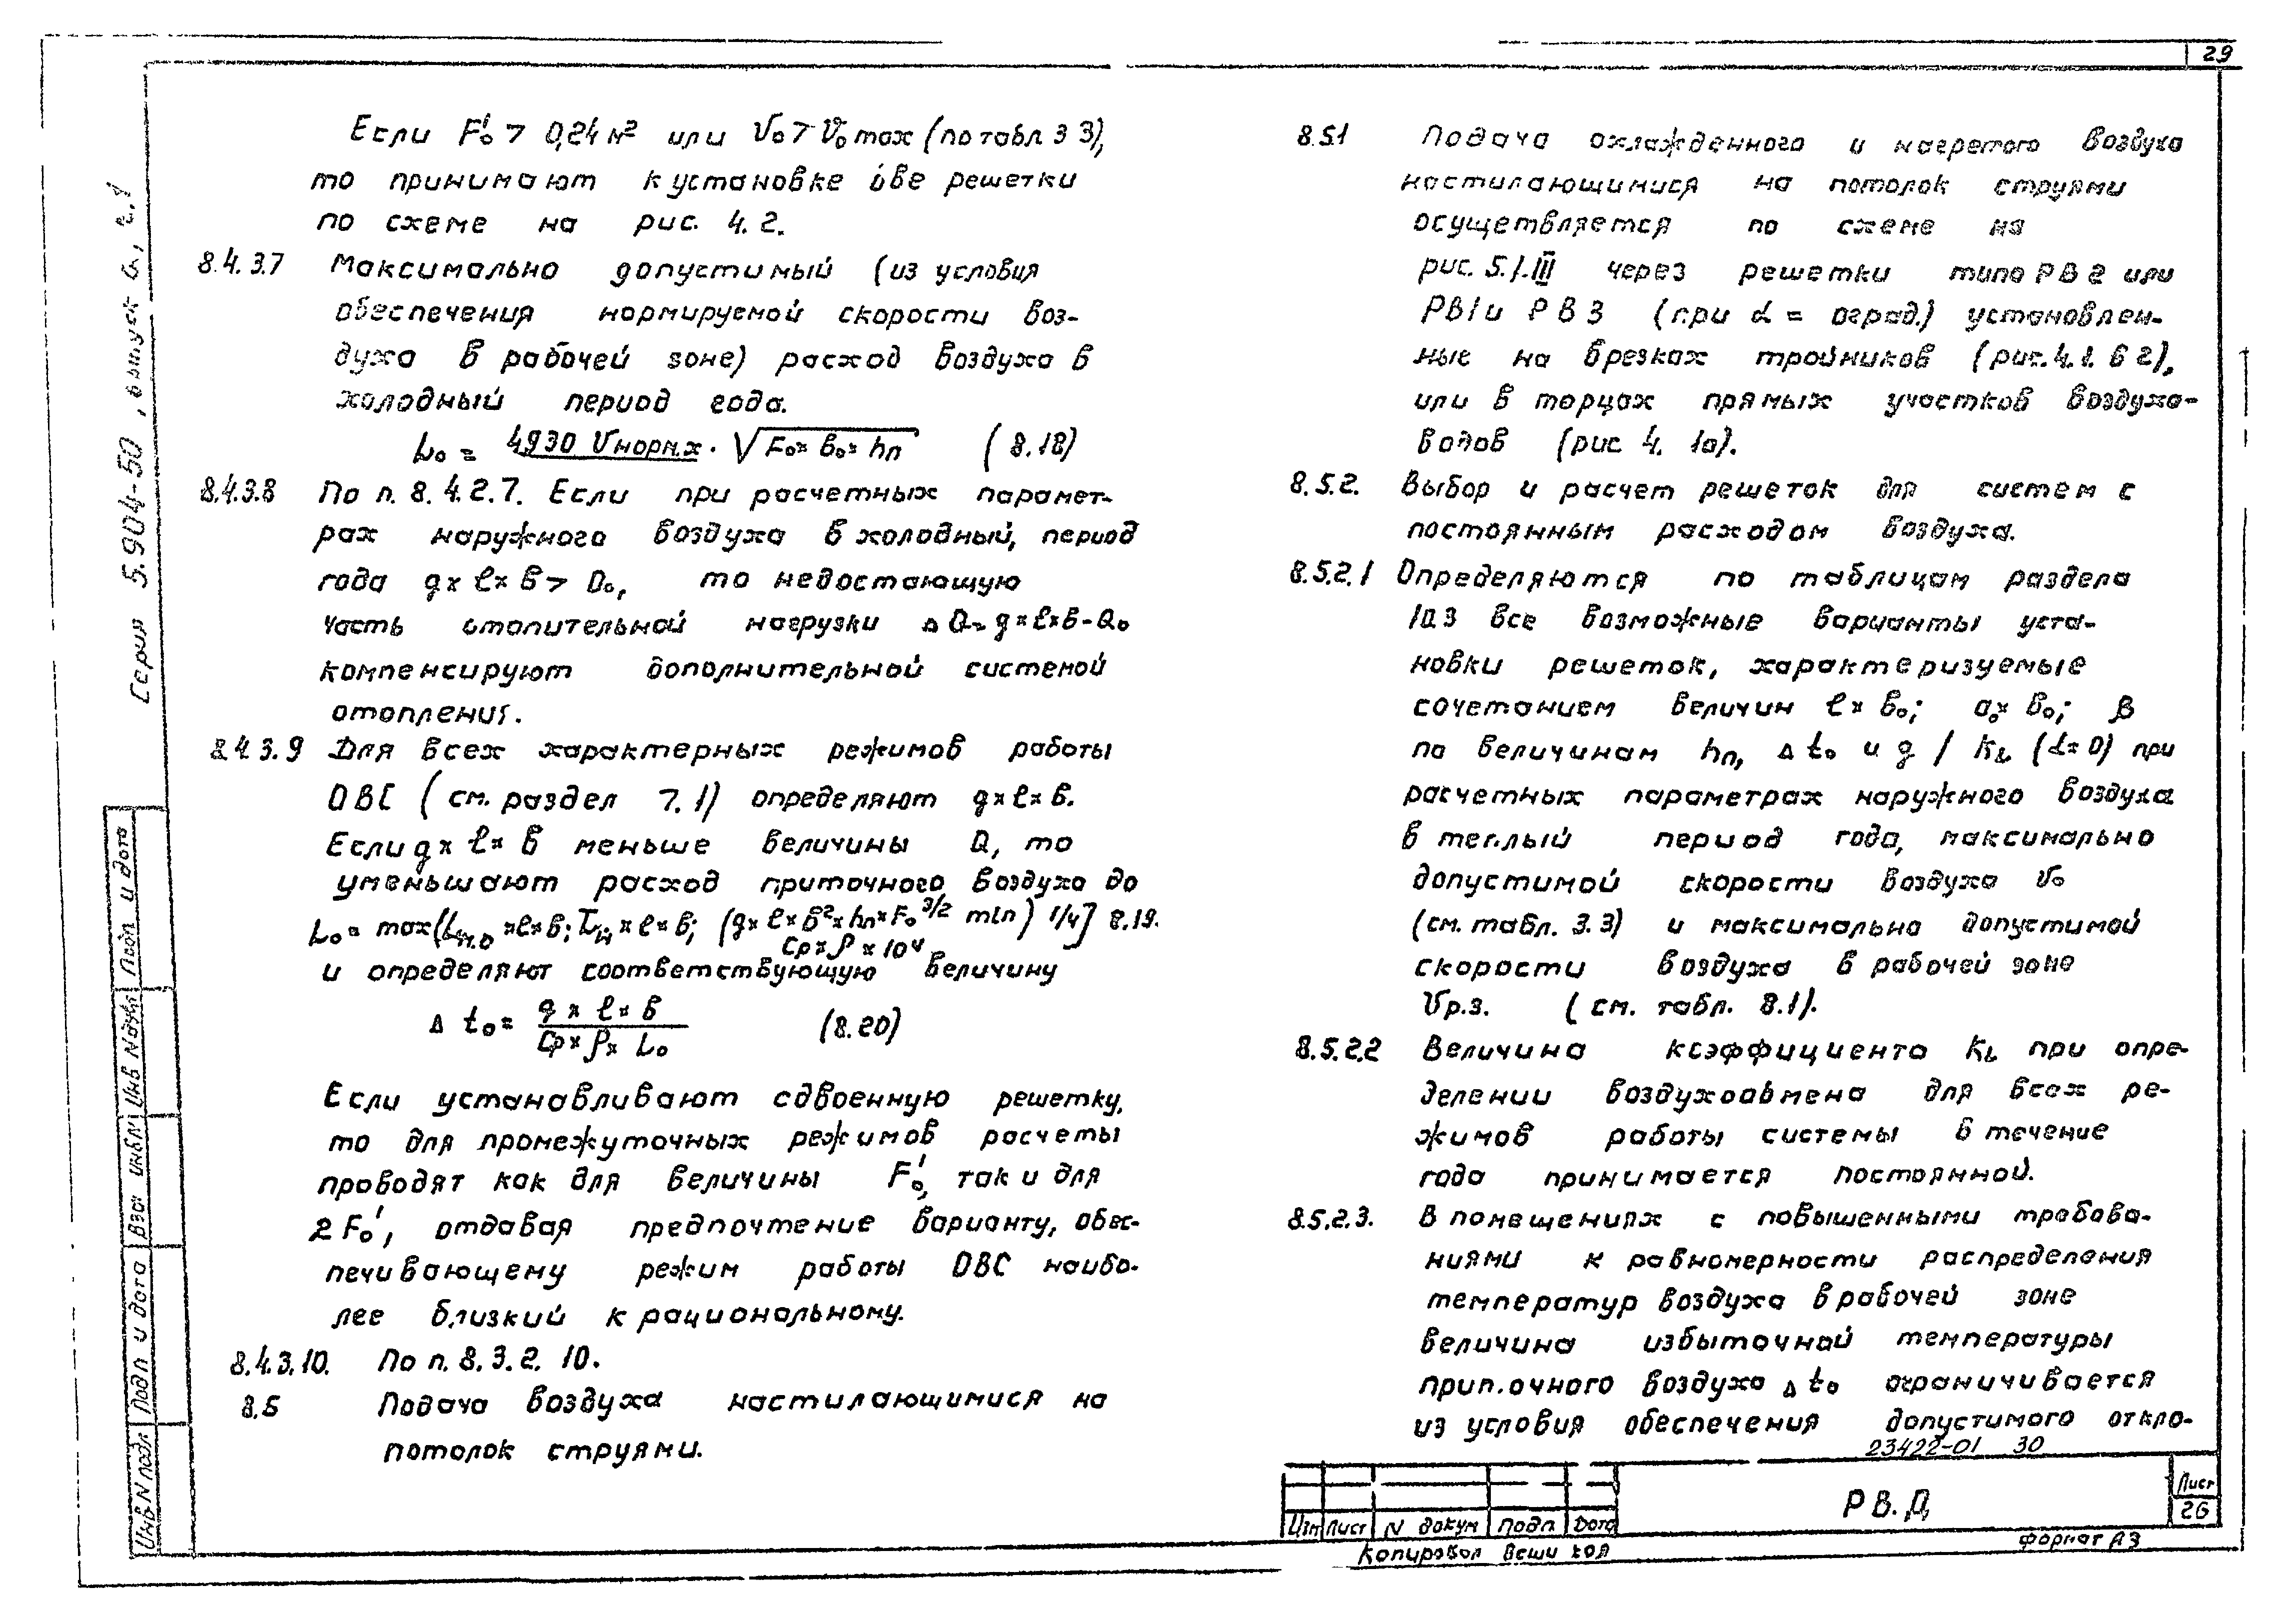 29
Если F₀' > 0,24 м² или V₀ > V₀ max (по табл 3 3),
то принимают к установке две решетки
по схеме на рис. 4.2.
8.4.3.7 Максимально допустимый (из условия
обеспечения нормируемой скорости воз-
духа в рабочей зоне) расход воздуха в
холодный период года.
L₀ = 4930 Vнорм.х · √F₀ × в₀ × hп (8.18)
8.4.3.8 По п. 8.4.2.7. Если при расчетных парамет-
рах наружного воздуха в холодный, период
года q × l × в > Q₀, то недостающую
часть отопительной нагрузки Δ Q = q × l × в - Q₀
компенсируют дополнительной системой
отопления.
8.4.3.9 Для всех характерных режимов работы
ОВС (см. раздел 7.1) определяют q × l × в.
Если q × l × в меньше величины Q, то
уменьшают расход приточного воздуха до
L₀ = max (Lм.о × l × в; Lн × l × в; (q × l × в² × hп × F₀ 3/2 min) 1/4] 8.19.
Cp × ρ × 10⁴
и определяют соответствующую величину
Δ t₀ = q × l × в / Cp × ρ × L₀ (8.20)
Если устанавливают сдвоенную решетку,
то для промежуточных режимов расчеты
проводят как для величины F₀', так и для
2 F₀', отдавая предпочтение варианту, обес-
печивающему режим работы ОВС наибо-
лее близкий к рациональному.
8.4.3.10. По п. 8.3.2.10.
8.5 Подача воздуха настилающимися на
потолок струями.
8.5.1 Подача охлажденного и нагретого воздуха
настилающимися на потолок струями
осуществляется по схеме на
рис. 5.1.III через решетки типа РВ2 или
РВ1 и РВ3 (при α = оград.) установлен-
ные на врезках тройников (рис. 4.1. б г),
или в торцах прямых участков воздухо-
водов (рис 4. 1а).
8.5.2. Выбор и расчет решеток для систем с
постоянным расходом воздуха.
8.5.2.1 Определяются по таблицам раздела
10.3 все возможные варианты уста-
новки решеток, характеризуемые
сочетанием величин l × в₀; a₀ × в₀; β
по величинам hп, Δ t₀ и q / KL (α = 0) при
расчетных параметрах наружного воздуха
в теплый период года, максимально
допустимой скорости воздуха V₀
(см. табл. 3.3) и максимально допустимой
скорости воздуха в рабочей зоне
Vр.з. (см. табл. 8.1).
8.5.2.2 Величина коэффициента KL при опре-
делении воздухообмена для всех ре-
жимов работы системы в течение
года принимается постоянной.
8.5.2.3. В помещениях с повышенными требова-
ниями к равномерности распределения
температур воздуха в рабочей зоне
величина избыточной температуры
приточного воздуха Δ t₀ ограничивается
из условия обеспечения допустимого откло-
23422-01 30
РВ.Д
Лист
26
Изм Лист N докум Подп Дата
Копировал
Формат А3
Серия 5.904-50, выпуск 0, ч.1
Подп и дата
Взам инв N
Подп и дата
Инв N подл